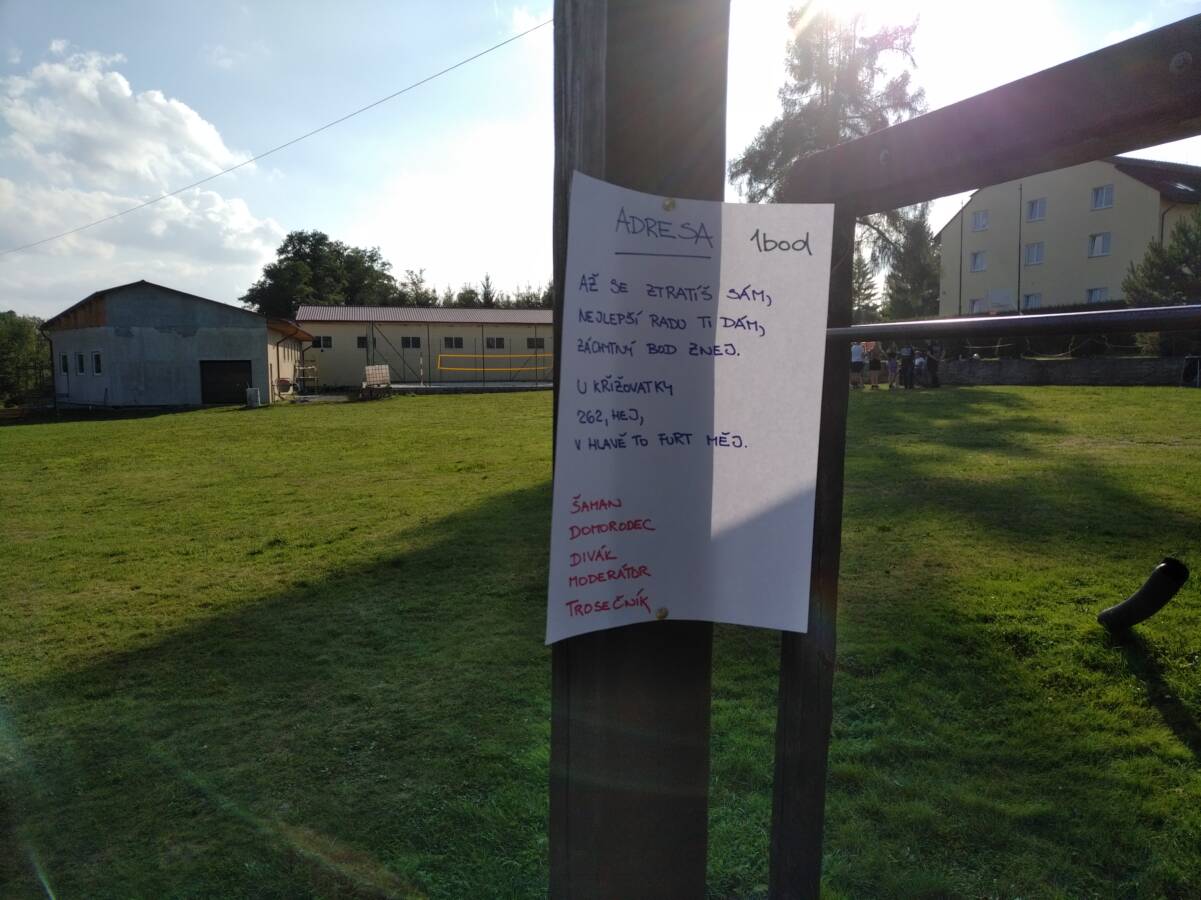 ADRESA
1bod
AŽ SE ZTRATÍŠ SÁM,
NEJLEPŠÍ RADU TI DÁM,
ZÁCHYTNÝ BOD ZNEJ.
U KŘIŽOVATKY
262, HEJ,
V HLAVĚ TO FURT MĚJ.
ŠAMAN
DOMORODEC
DIVÁK
MODERÁTOR
TROSEČNÍK